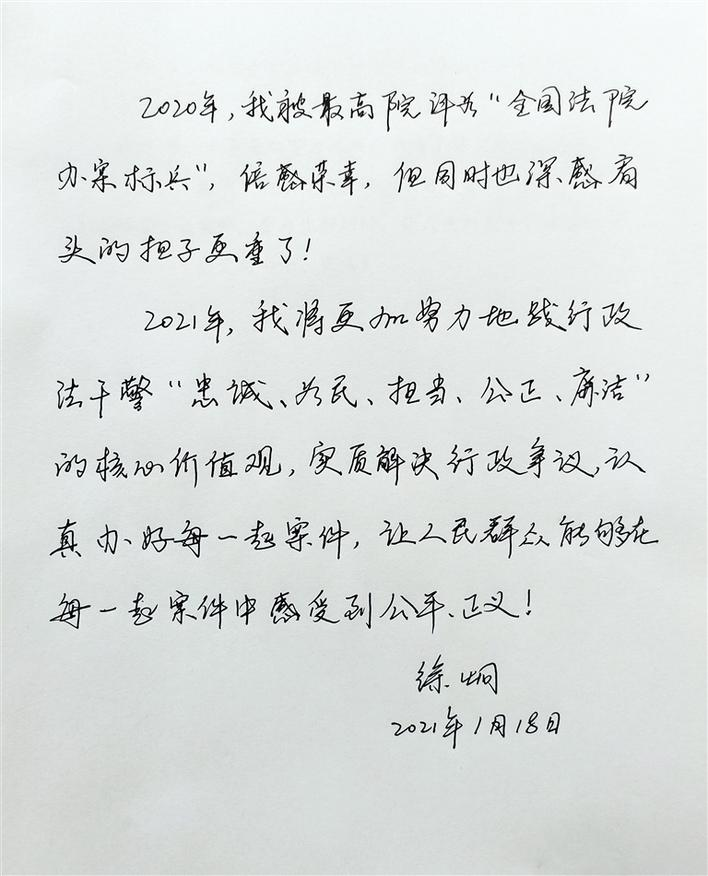 2020年，我被最高院评为“全国法院
办案标兵”，倍感荣幸，但同时也深感肩
头的担子更重了！
2021年，我将更加努力地践行政
法干警“忠诚、为民、担当、公正、廉洁”
的核心价值观，实质解决行政争议，认
真办好每一起案件，让人民群众能够在
每一起案件中感受到公平、正义！
徐炯
2021年1月18日